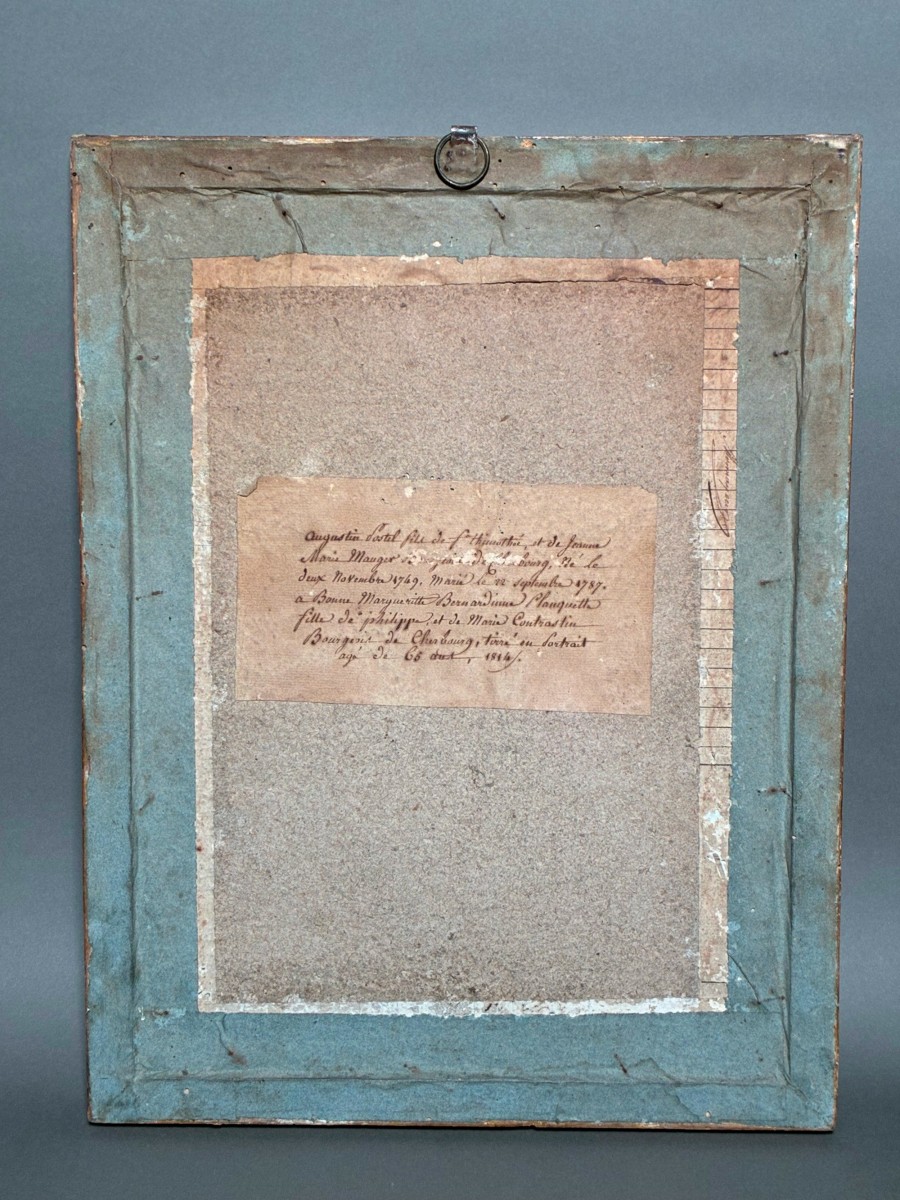 Augustin Postel fils de fs Thimothé, et de Jeanne
Marie Mauger de Cherbourg, Né le
deux Novembre 1749, Marié le 22 septembre 1787.
a Bonne Margueritte Bernardinne Planquette
fille de philippe, et de Marie Contrastin
Bourgeois de Cherbourg, tirré en Portrait
agé de 65 ans, 1814.